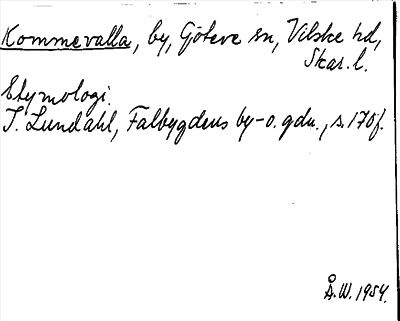 Kommevalla, by, Göteve sn, Vilske hd,
Skar. l.
Etymologi.
I. Lundahl, Falbygdens by- o. gdn., s. 170f.
Å.W. 1954.